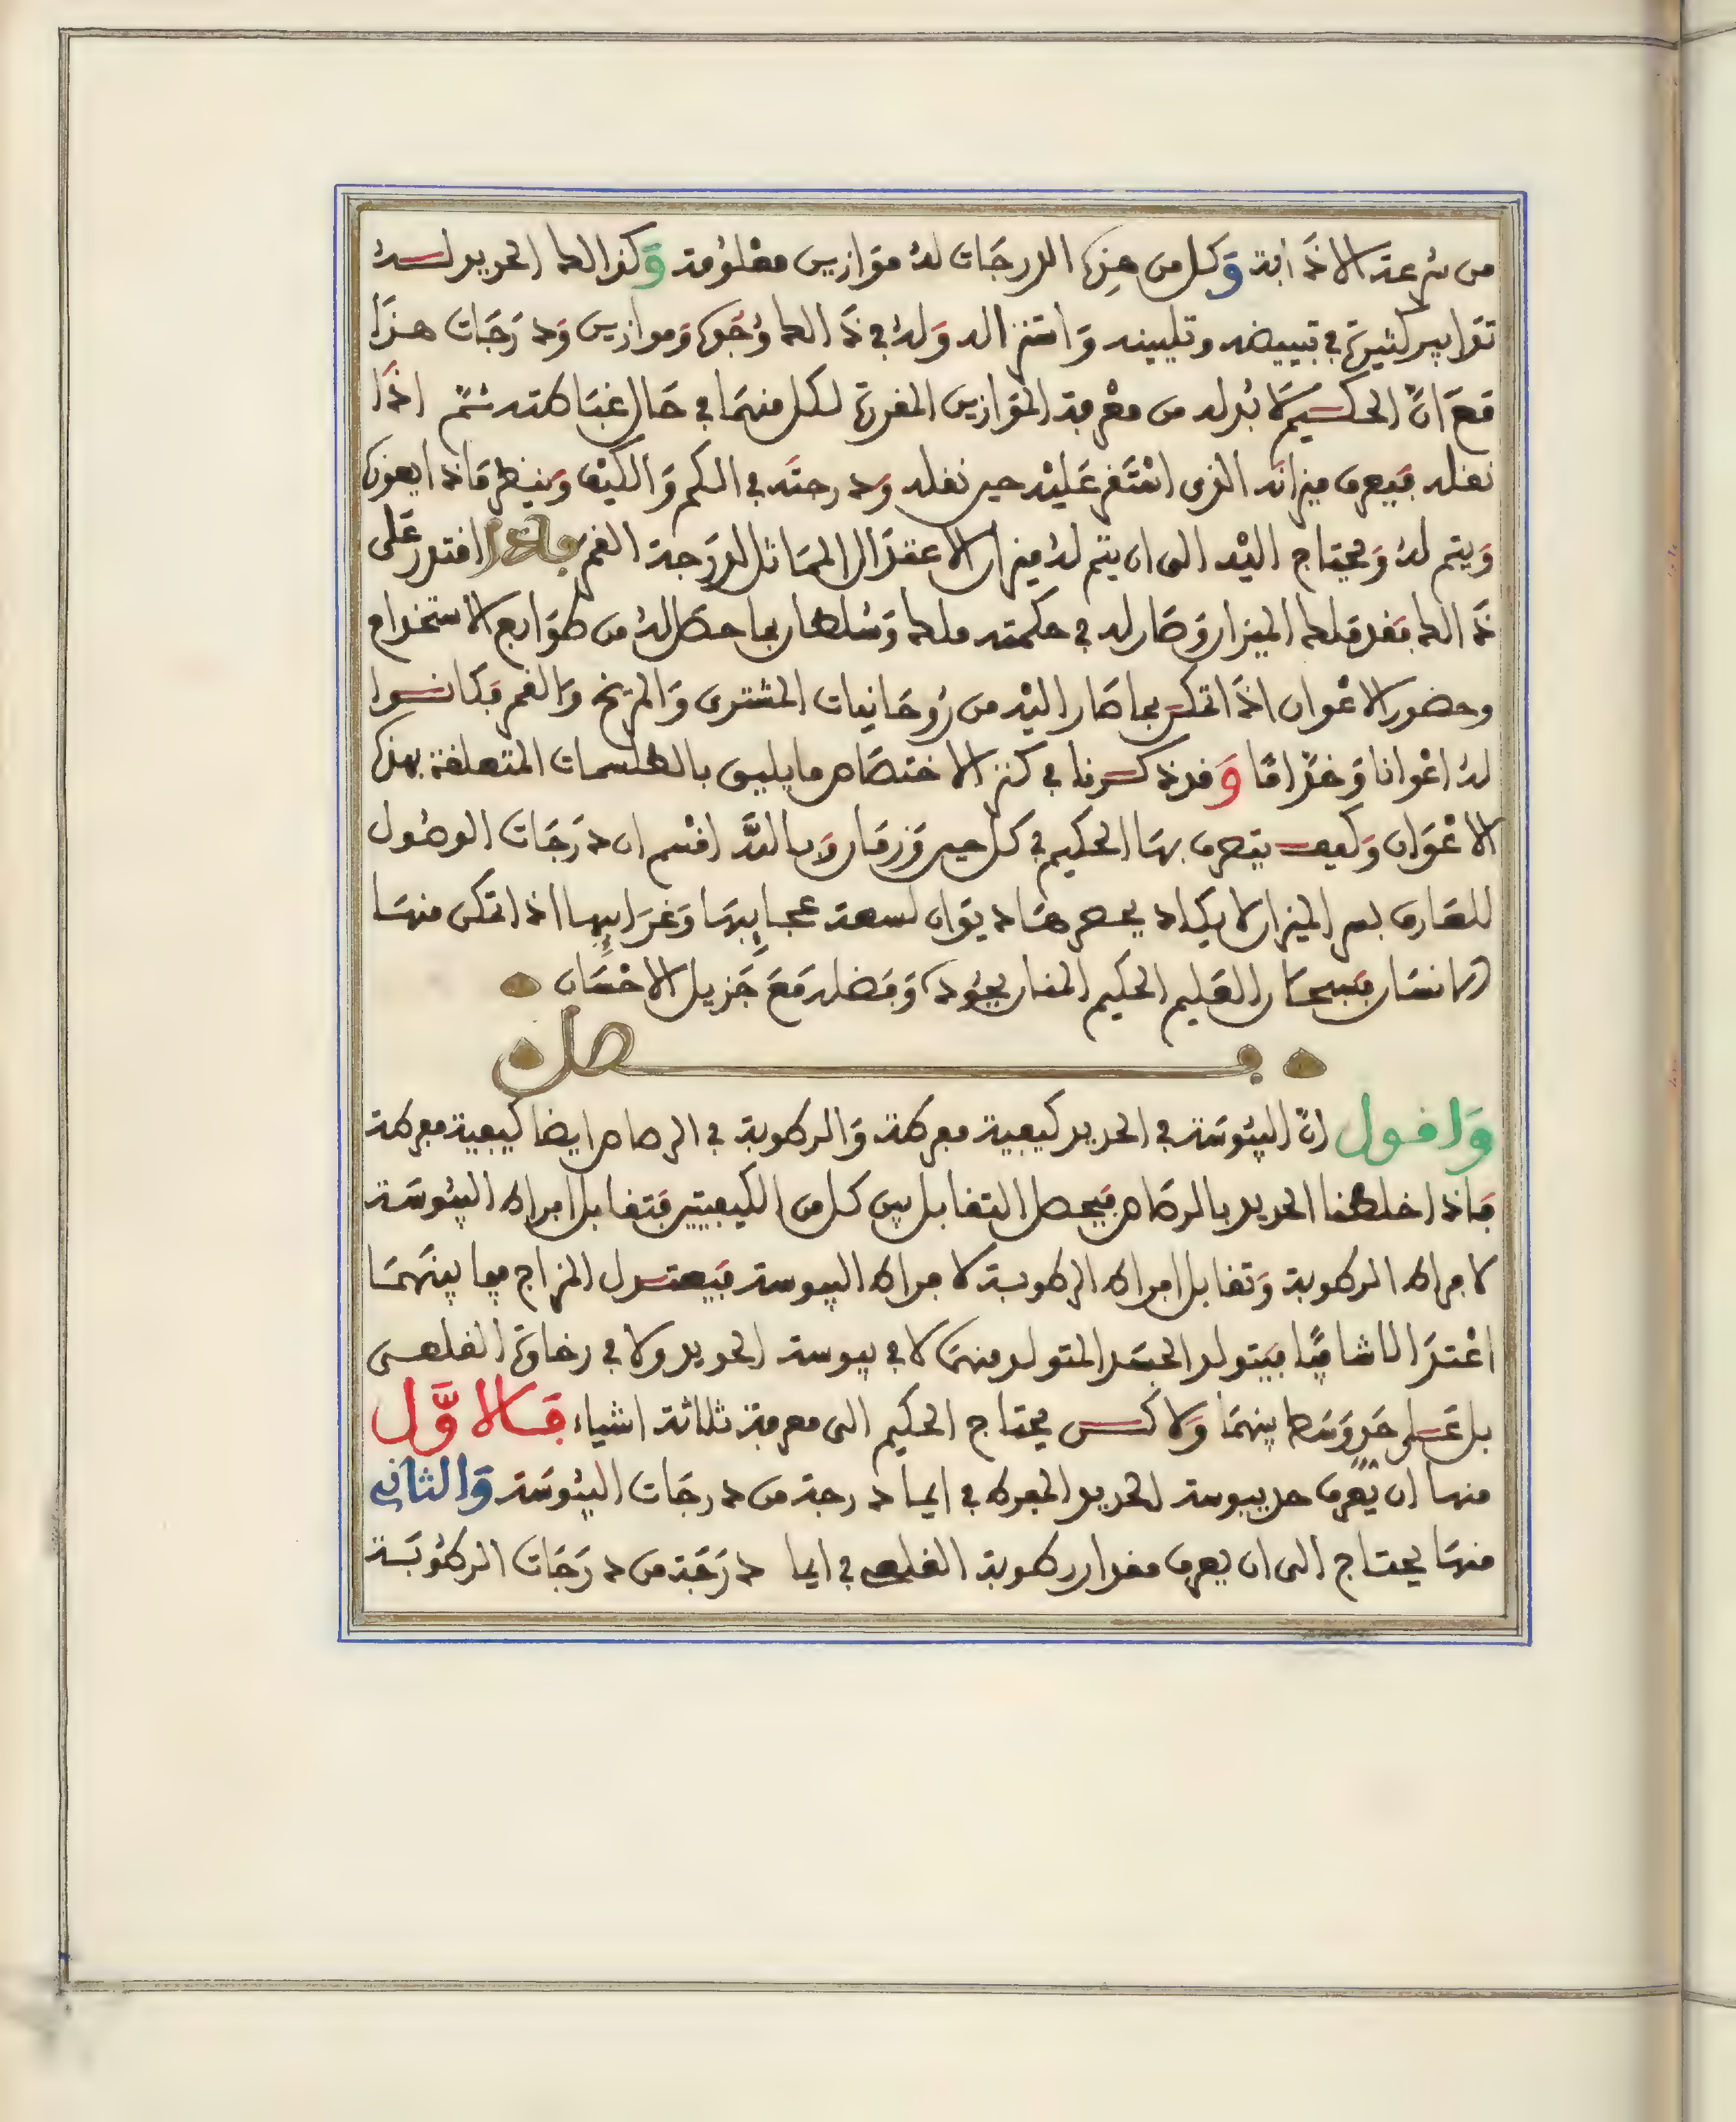 من سرعة الاذابة وكل من هذه الدرجات له موازين معلومة وكذالك الحديد لـه
تدابير كثيرة في تبييضه وتليينه واستنزاله وله في ذالك وجوه وموازين ودرجات هذا
مع ان الحكيم لا بد له من معرفة الموازين المفردة لكل منهما في حال غباطته ثم اذا
نقله فيعرف ميزانه الذي استقر عليه حين نقله ودرجته في الكم والكيف وينظر ماذا يعوزه
ويتم له ويحتاج اليه الى ان يتم له ميزان الاعتدال المماثل لدرجة القمر فاذا اقتدر على
ذالك فقد ملك الميزان وصار له في حكمته ملك وسلطان بما حصل له من طوابع الاستخدام
وحضور الاعوان اذا تمكن بما صار اليه من روحانيات المشتري والمريخ والقمر فكانوا
له اعوانا وخداما وقد ذكرنا في كنز الاختصاص ما يليق بالطلسمات المتعلقة بهذه
الاعوان وكيف يتصرف بها الحكيم في كل حين وزمان وبالله اقسم ان درجات الوصول
للعارف بسر الميزان لا يكاد يحصرها ديوان لسعة عجايبها وغرايبها اذا تمكن منها
الانسان فسبحان العليم الحكيم المنان بجوده وفضله مع جزيل الاحسان
فصل
واقول ان اليبوسة في الحديد كيفية مفرطة والرطوبة في الرصاص ايضا كيفية مفرطة
فاذا خلطنا الحديد بالرصاص فيحصل التقابل بين كل من الكيفيتين فتقابل افراط اليبوسة
لافراط الرطوبة وتقابل افراط الرطوبة لافراط اليبوسة فيعتدل المزاج فيما بينهما
اعتدالا شافيا فيتولد الجسد المتولد منهما لا في يبوسة الحديد ولا في رخاوة القلعي
بل على حد وسط بينهما ولاكن يحتاج الحكيم الى معرفة ثلاثة اشياء فالاول
منها ان يعرف حد يبوسة الحديد المفرط في ايما درجة من درجات اليبوسة والثاني
منها يحتاج الى ان يعرف مقدار رطوبة القلعي في ايما درجة من درجات الرطوبة